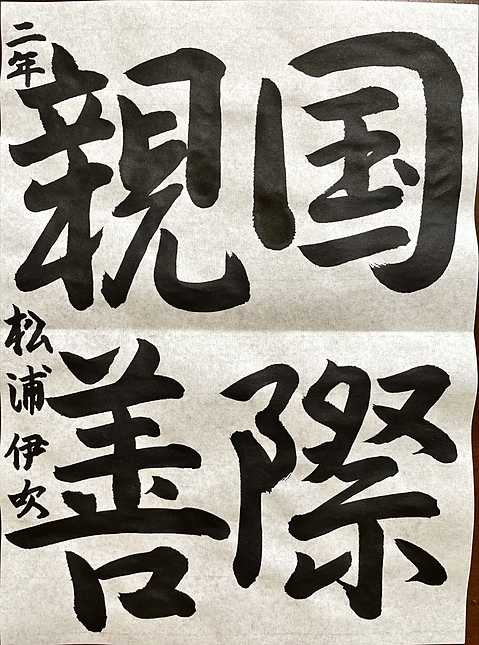 国際
親善
二年 松浦伊吹